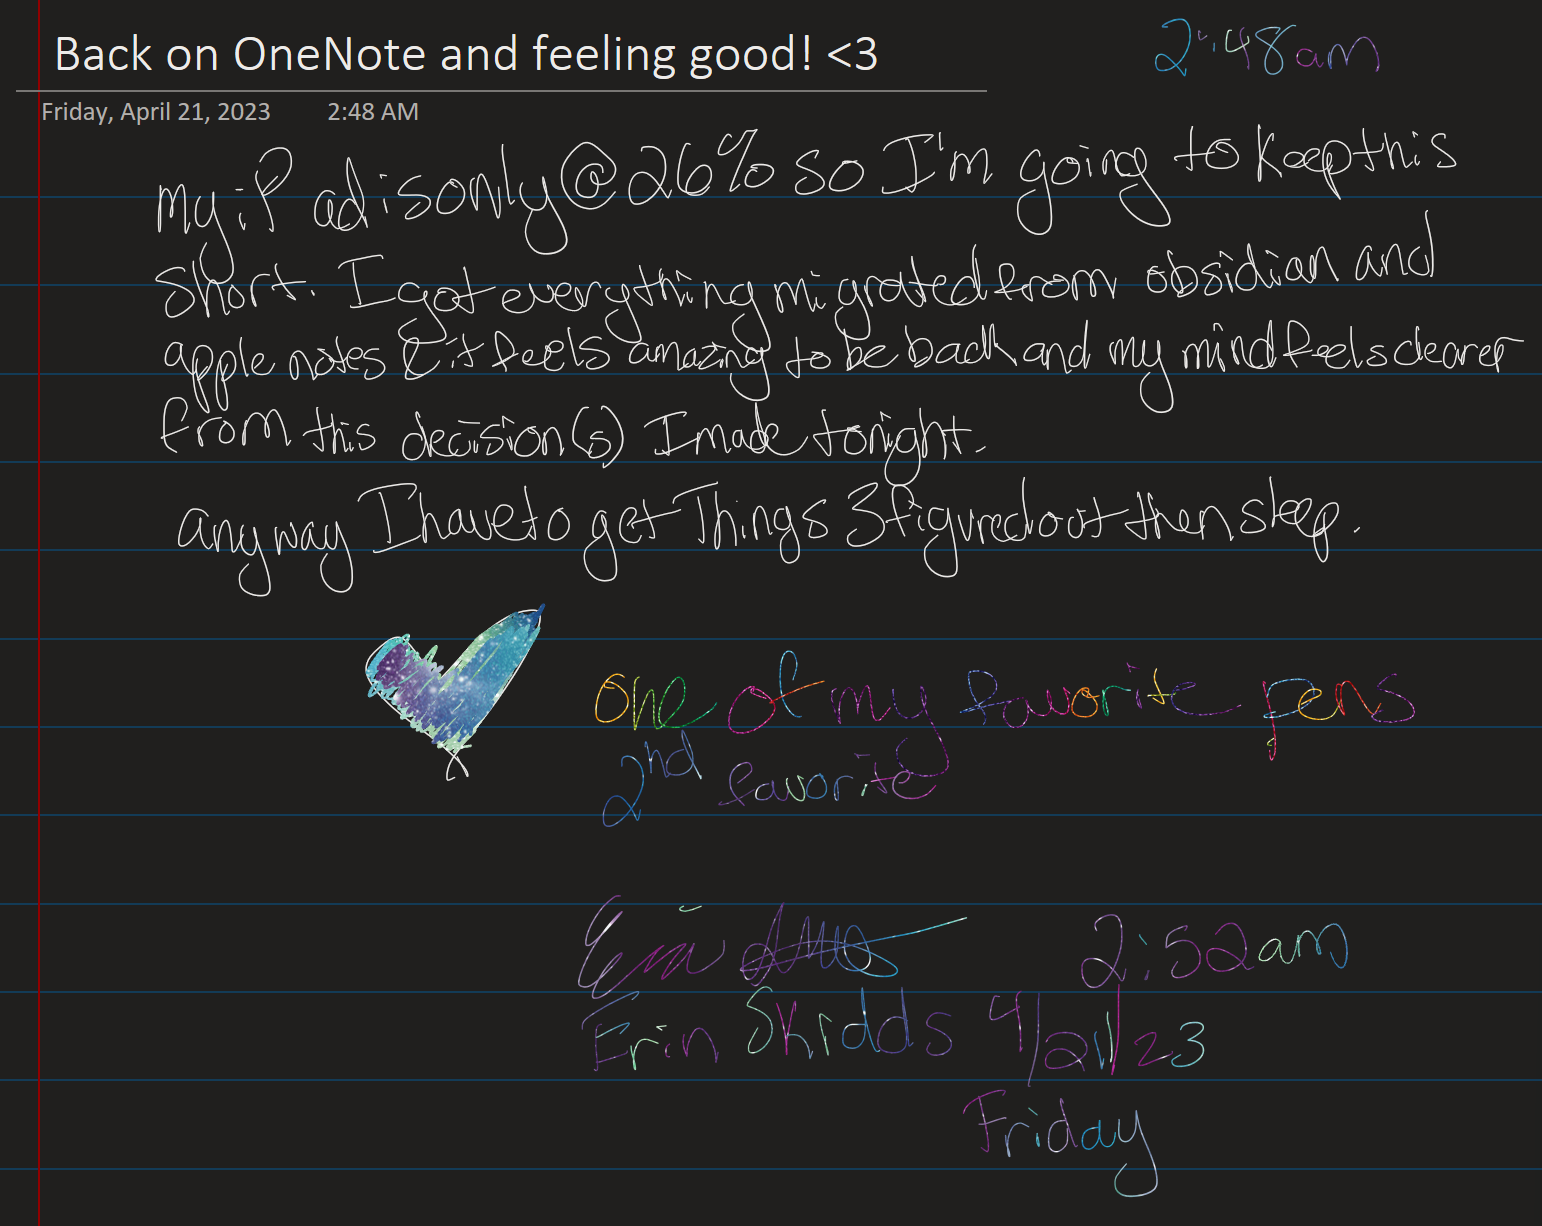 Back on OneNote and feeling good! <3
2:48am
Friday, April 21, 2023 2:48 AM
my iPad is only @ 26% so I'm going to keep this
short. I got everything migrated from obsidian and
apple notes & it feels amazing to be back and my mind feels clearer
from this decision(s) I made tonight.
anyway I have to get Things 3 figured out then sleep.
one of my favorite pens
2nd favorite
Erin
2:52am
Erin Skidds 4/21/23
Friday